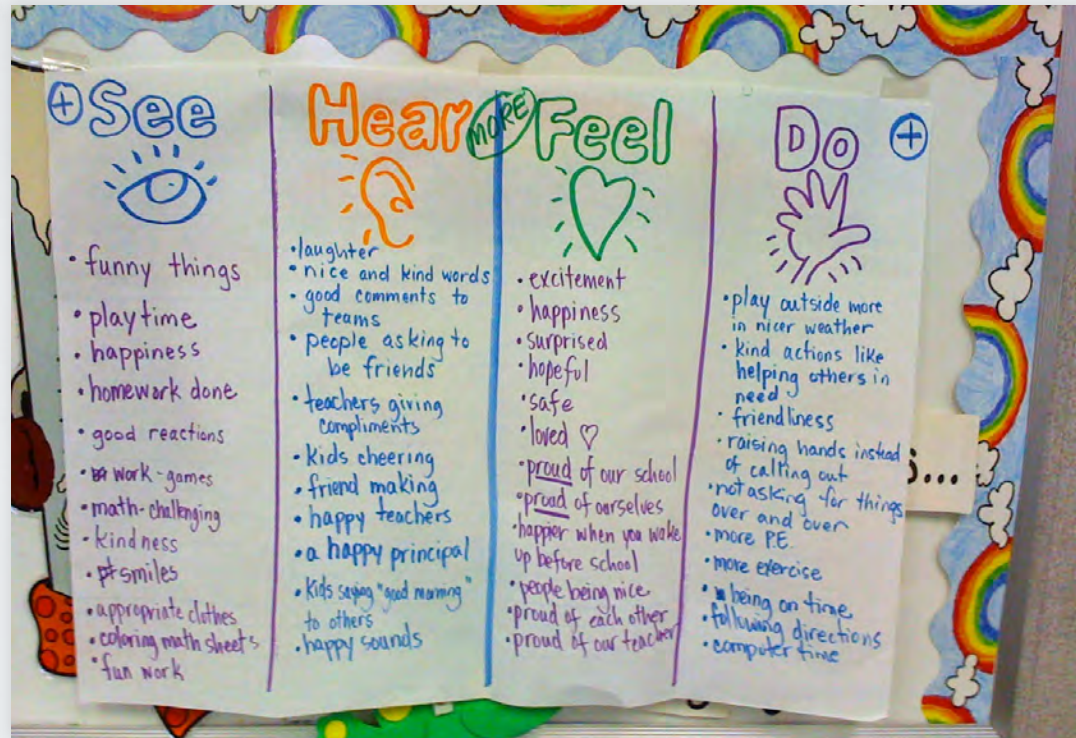 + See
• funny things
• playtime
• happiness
• homework done
• good reactions
• work - games
• math - challenging
• kindness
• smiles
• appropriate clothes
• coloring math sheets
• fun work
Hear
• laughter
• nice and kind words
• good comments to
teams
• people asking to
be friends
• teachers giving
compliments
• kids cheering
• friend making
• happy teachers
• a happy principal
• kids saying "good morning"
to others
• happy sounds
MORE
Feel
• excitement
• happiness
• surprised
• hopeful
• safe
• loved ♡
• proud of our school
• proud of ourselves
• happier when you wake
up before school
• people being nice
• proud of each other
• proud of our teacher
Do +
• play outside more
in nicer weather
• kind actions like
helping others in
need
• friendliness
• raising hands instead
of calling out
• not asking for things
over and over
• more P.E.
• more exercise
• being on time
• following directions
• computer time
s...